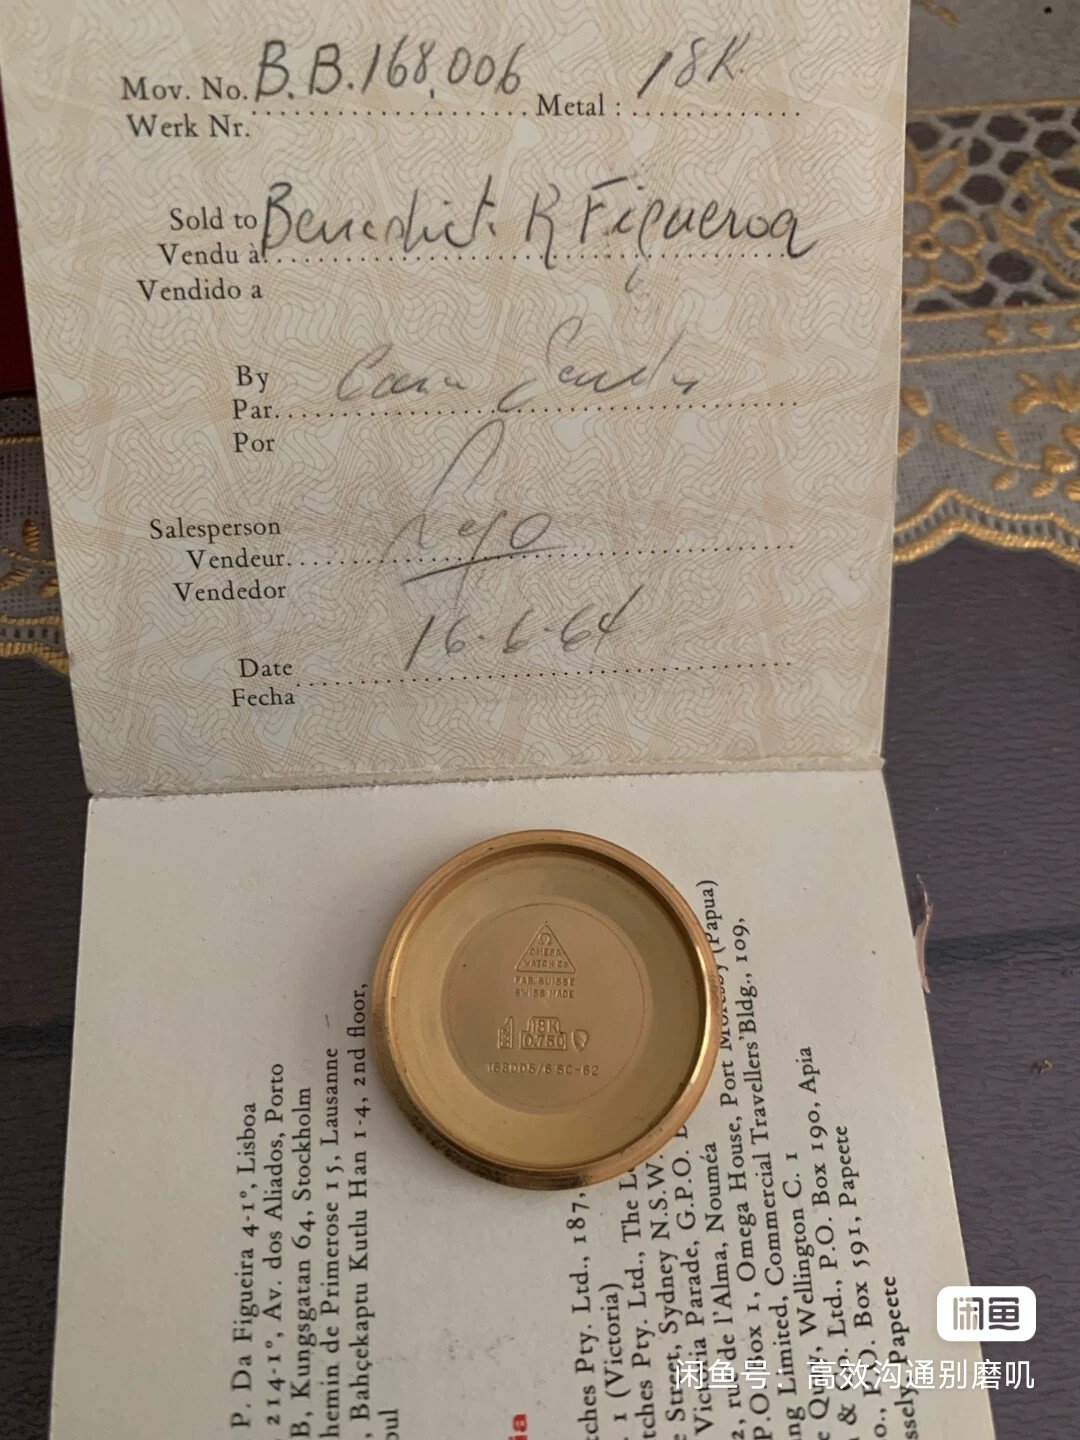 Mov. No. B.B. 168,006 Metal : 18K.
Werk Nr.
Sold to Benedicti R Figueroa
Vendu à
Vendido a
By
Par
Por
Salesperson
Vendeur
Vendedor
Date 16-6-64
Fecha
Ω
OMEGA
WATCH Co
FAB. SUISSE
SWISS MADE
18K
0.750
168005/6 SC-62
P. Da Figueira 4-1°, Lisboa
214-1°, Av. dos Aliados, Porto
B, Kungsgatan 64, Stockholm
hemin de Primerose 15, Lausanne
, Bahçekaptu Kutlu Han 1-4, 2nd floor,
bul
ia
tches Pty. Ltd., 187,
1 (Victoria)
tches Pty. Ltd., The
e Street, Sydney N.S.W.
Victoria Parade, G.P.O.
2, rue de l'Alma, Nouméa
P.O. Box 1, Omega House, Port Moresby (Papua)
ng Limited, Commercial Travellers'Bldg., 109,
e Quay, Wellington C. 1
& Co. Ltd., P.O. Box 190, Apia
o., P.O. Box 591, Papeete
ssely Papeete
闲鱼
闲鱼号：高效沟通别磨叽